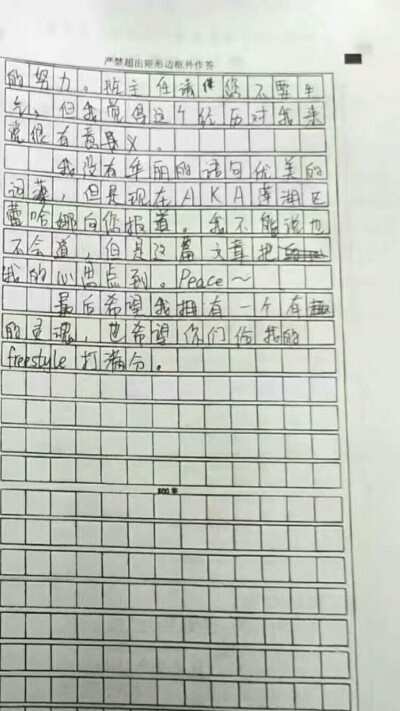 严禁超出矩形边框外作答
的努力。班主任请您不要生
气，但我觉得这个经历对我来
说很有意义。
我没有华丽的语句优美的
词藻，但是现在AKA
蕾哈娜向您报道。我不能说也
不会道，但是这篇文章把
我的心思点到。Peace～
最后希望我拥有一个有趣
的灵魂，也希望你们给我的
freestyle打满分。
800字